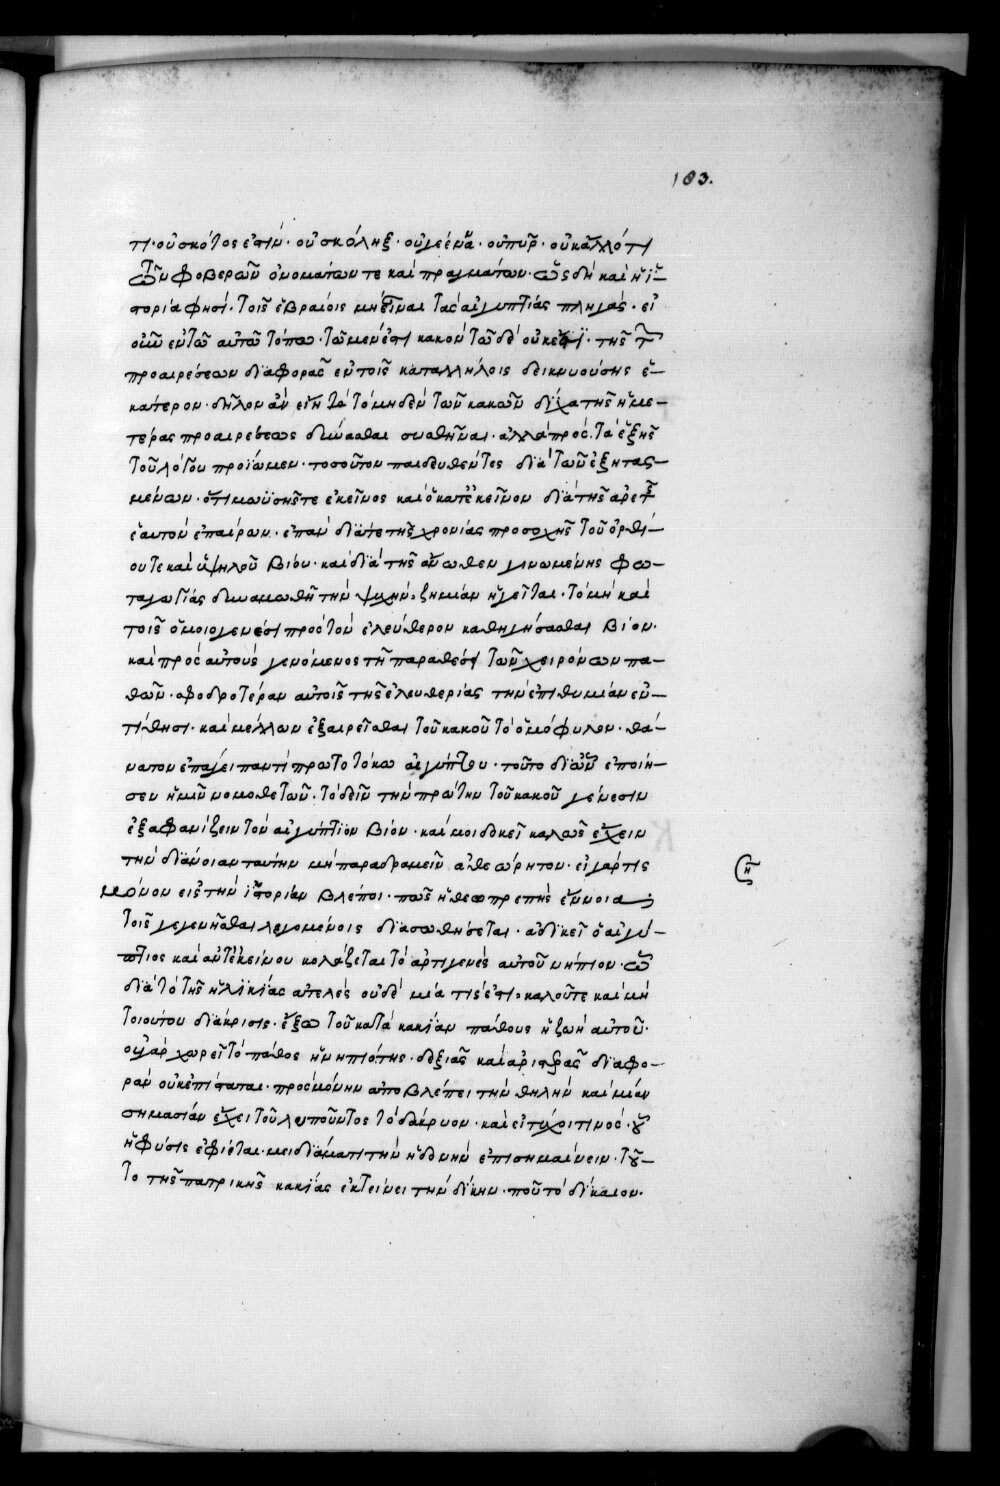 103.
τι· οὐ σκότος ἐστίν· οὐ σκώληξ· οὐ γέεννα· οὐ πῦρ· οὐκ ἄλλό τι
τῶν φοβερῶν ὀνομάτων τε καὶ πραγμάτων· ὡς δὴ καὶ ἡ ἱ-
στορία φησὶ· τοῖς ἑβραίοις μὴ εἶναι τὰς αἰγυπτίας πληγάς· εἰ
οὖν ἐν τῶ αὐτῶ τόπω· τῶ μὲν ἐστὶ κακὸν τῶ δὲ οὐκ ἔστι· τῆς τῶν
προαιρέσεων διαφορᾶς ἐν τοῖς καταλλήλοις δεικνυούσης ἑ-
κάτερον· δῆλον ἂν εἴη τὸ μηδὲν τῶν κακῶν δίχα τῆς ἡμε-
τέρας προαιρέσεως δύνασθαι συσθῆναι· ἀλλὰ πρὸς τὰ ἑξῆς
τοῦ λόγου προΐωμεν· τοσοῦτον παιδευθέντες διὰ τῶν ἐξητας-
μένων· ὅτι μωϋσῆς τε ἐκεῖνος καὶ ὁ κατ' ἐκεῖνον διὰ τῆς ἀρετῆς
ἑαυτὸν ἐπαίρων· ἐπὰν διά τε τῆς χρονίας προσοχῆς τοῦ ὀρθί-
ου τε καὶ ὑψηλοῦ βίου· καὶ διὰ τῆς ἄνωθεν γινωμένης φω-
ταγωγίας δυναμωθῆ τὴν ψυχήν· ζημίαν ἡγεῖται· τὸ μὴ καὶ
τοῖς ὁμοιογενέσι πρὸς τὸν ἐλεύθερον καθηγήσασθαι βίον·
καὶ πρὸς αὐτοὺς γενόμενος τῆ παραθέσει τῶν χειρόνων πα-
θῶν· σφοδροτέραν αὐτοῖς τῆς ἐλευθερίας τὴν ἐπιθυμίαν ἐν-
τίθησι· καὶ μέλλων ἐξαιρεῖσθαι τοῦ κακοῦ τὸ ὁμόφυλον· θά-
νατον ἐπάγει παντὶ πρωτοτόκω αἰγύπτου· τοῦτο διὧν ἐποίη-
σεν ἡμῖν νομοθετῶν· τὸ δεῖν τὴν πρώτην τοῦ κακοῦ γένεσιν
ἐξαφανίζειν τὸν αἰγύπτιον βίον· καί μοι δοκεῖ καλῶς ἔχειν
τὴν διάνοιαν ταύτην μὴ παραδραμεῖν ἀθεώρητον· εἰ γάρ τις
μόνον εἰς τὴν ἱστορίαν βλέποι· πῶς ἡ θεοπρεπὴς ἔννοια
τοῖς γεγενῆσθαι λεγομένοις διασωθήσεται· ἀδικεῖ ὁ αἰγύ-
πτιος καὶ ἀντ' ἐκείνου κολάζεται τὸ ἀρτιγενὲς αὐτοῦ νήπιον· ὧ
διὰ τὸ τῆς ἡλικίας ἀτελὲς οὐδὲ μία τίς ἐστι· καλοῦ τε καὶ μὴ
τοιούτου διάκρισις· ἔξω τοῦ κατὰ κακίαν πάθους ἡ ζωὴ αὐτοῦ·
οὐ γὰρ χωρεῖ τὸ πάθος ἡ νηπιότης· δεξιᾶς καὶ ἀριστερᾶς διαφο-
ρὰν οὐκ ἐπίσταται· πρὸς μόνην ἀποβλέπει τὴν θηλὴν καὶ μίαν
σημασίαν ἔχει τοῦ λυποῦντος τὸ δάκρυον· καὶ εἰ τύχοι τινὸς· οὗ
ἡ φύσις ἐφίεται· μειδιάματι τὴν ἡδονὴν ἐπισημαίνειν· τοῦ-
το τῆς πατρικῆς κακίας ἐκτείνει τὴν δίκην· ποῦ τὸ δίκαιον·